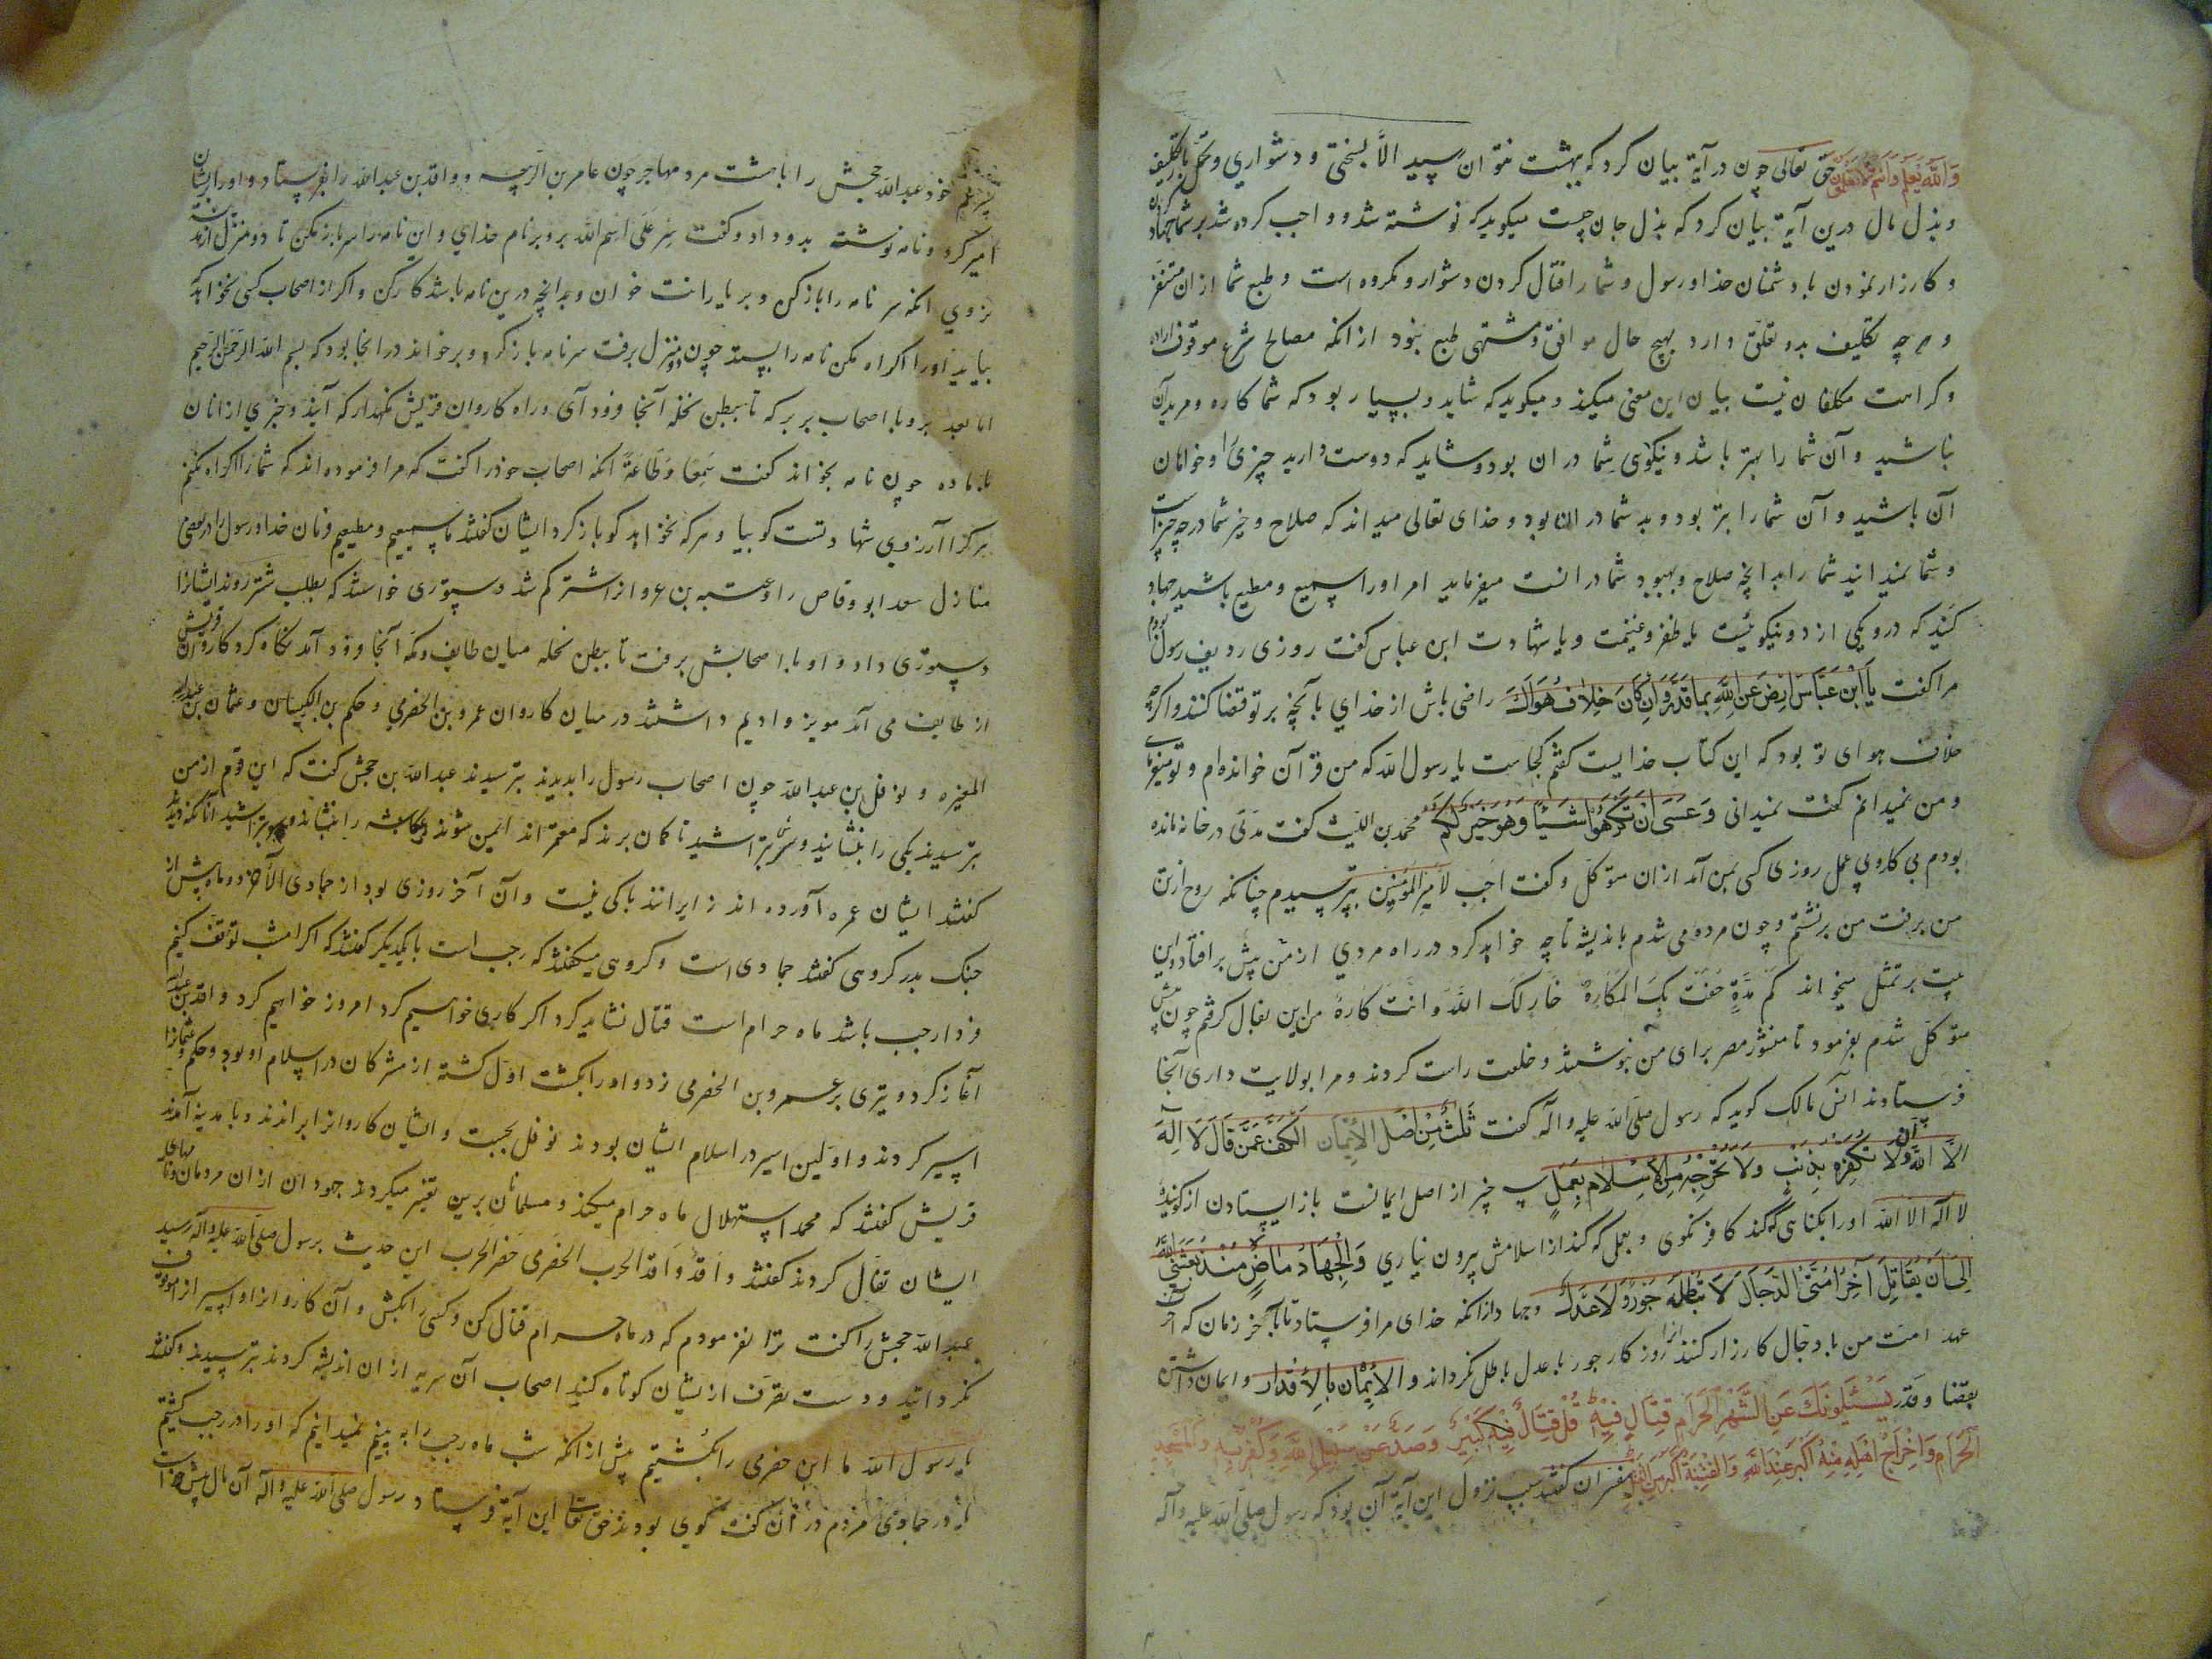 وَاللّهُ يَعْلَمُ وَأَنْتُمْ لَا تَعْلَمُونَ حق تعالی چون در آیة بیان کرد که بهشت نتوان رسید الّا بسختی و دشواری و تحمّل بار تکلیف
و بذل مال درین آیة بیان کرد که بذل جان چیست میکوید که نوشته شد و واجب کرده شد بر شما جهاد کردن
و کارزار نمودن با دشمنان خدا و رسول و شما را قتال کردن دشوار و مکروه است و طبع شما از ان متنفر
و هر چه تکلیف بدو تعلّق دارد بهیچ حال موافق و مشتهی طبع نبود از انکه مصالح شرع موقوف اراده
و کراهت مکلفان نیست بیان این معنی میکند و میکوید که شاید و بسیار بود که شما کاره و مرید آن
نباشید و آن شما را بهتر باشد و نیکوی شما در ان بود و شاید که دوست دارید چیزی را و خواهان
آن باشید و آن شما را بتر بود و بد شما در ان بود و خدای تعالی میداند که صلاح و خیر شما در چه چیز است
و شما نمیدانید شما را بدانچه صلاح و بهبود شما در انست میفرماید امر او را سمیع و مطیع باشید جهاد
کنید که درو یکی از دو نیکوئیست یا ظفر و غنیمت و یا شهادت ابن عباس کفت روزی ردیف رسول بودم
مرا کفت يَا ابْنَ عَبَّاسٍ ارْضَ عَنِ اللَّهِ بِمَا قَدَّرَ وَإِنْ كَانَ خِلَافَ هَوَاكَ راضی باش از خدای بآنچه بر تو قضا کند و اکر چه
خلاف هوای تو بود که این کتاب خدایست کفتم کجاست یا رسول الله که من قرآن خوانده‌ام و تو میفرمایی
و من نمیدانم کفت نمیدانی وَعَسَى أَنْ تَكْرَهُوا شَيْئًا وَهُوَ خَيْرٌ لَكُمْ محمد بن اللیث کفت مدّتی در خانه مانده
بودم بی کار و بی عمل روزی کسی بمن آمد از ان متوکّل و کفت اجب لامیر المؤمنین بترسیدم چنانکه روح از تن
من برفت من برنشستم و چون مرده می شدم باندیشه تا چه خواهد کرد در راه مردی از من پیش بر افتاد و این
بیت بر تمثّل میخواند کَمْ مَرَّةٍ حَفَّتْ بِکَ المَکَارِهُ خَارَ لَکَ اللّهُ وَ انْتَ کَارِهُ من این بفال کرفتم چون پیش
متوکّل شدم بفرمود تا منشور مصر برای من نبوشتند و خلعت راست کردند و مرا بولایت داری آنجا
فرستادند انس مالک کوید که رسول صلّی الله علیه و آله کفت ثَلَثٌ مِنْ أَصْلِ الْإِيمَانِ الْكَفُّ عَمَّنْ قَالَ لَا إِلَهَ
إِلَّا اللَّهُ وَلَا نُكَفِّرُهُ بِذَنْبٍ وَلَا نُخْرِجُهُ مِنَ الْإِسْلَامِ بِعَمَلٍ سه چیز از اصل ایمانست باز ایستادن از کوینده
لا اله الا الله او را بکناهی که کند کافر نکوی و بعملی که کند از اسلامش بیرون نیاری وَالْجِهَادُ مَاضٍ مُنْذُ بَعَثَنِي اللَّهُ
إِلَى أَنْ يُقَاتِلَ آخِرُ أُمَّتِي الدَّجَّالَ لَا يُبْطِلُهُ جَوْرٌ وَلَا عَدْلٌ و جهاد از انکه خدای مرا فرستاد تا بآخر زمان که آخر
عهد امّت من با دجّال کارزار کنند آنرا روز کار جور با عدل باطل نکرداند و الْإِيمَانُ بِالْأَقْدَارِ و ایمان داشتن
بقضا و قدر يَسْئَلُونَكَ عَنِ الشَّهْرِ الْحَرَامِ قِتَالٍ فِيهِ قُلْ قِتَالٌ فِيهِ كَبِيرٌ وَصَدٌّ عَنْ سَبِيلِ اللَّهِ وَكُفْرٌ بِهِ وَالْمَسْجِدِ
الْحَرَامِ وَإِخْرَاجُ أَهْلِهِ مِنْهُ أَكْبَرُ عِنْدَ اللَّهِ وَالْفِتْنَةُ أَكْبَرُ مِنَ الْقَتْلِ مفسران کفتند سبب نزول این آیة آن بود که رسول صلّی الله علیه و آله
پسر عم خود عبدالله جحش را با هشت مرد مهاجر چون عامر بن الربیعه و واقد بن عبدالله را بفرستاد و او را بر ایشان
امیر کرد و نامه نوشته بدو داد و کفت سِرْ عَلَی اسْمِ الله برو بر نام خدای و این نامه را سر باز مکن تا دو منزل از مدینه
نروی انکه سر نامه را باز کن و بر یارانت خوان و بدانچه درین نامه باشد کار کن و اکر از اصحاب کسی نخواهد که
بیاید او را اکراه مکن نامه را بستد چون دو منزل برفت سر نامه باز کرد و برخواند در انجا بود که بسم الله الرحمن الرحیم
امّا بعد برو با اصحاب بر برکه تا ببطن نخله آنجا فرود آی و راه کاروان قریش نکهدار که آیند و خبری از انان
چون نامه بخواند کفت سَمْعًا وَطَاعَةً انکه اصحاب خود را کفت که مرا فرموده اند که شما را اکراه نکنم
هر کرا آرزوی شهادتست کو بیا و هر که نخواهد کو باز کرد ایشان کفتند ما سمیعیم و مطیعیم فرمان خدا و رسول را در بعضی
منازل سعد ابو وقاص را و عتبه بن غزوان اشتر کم شد دستوری خواستند که بطلب شتر روند ایشانرا
دستوری داد و او با اصحابش برفت تا ببطن نخله میان طایف و مکّه آنجا فرود آمد نکاه کرد کاروان قریش
از طایف می آمد مویز و ادیم داشتند در میان کاروان عمرو بن الحضرمی و حکم بن الکیسان و عثمان بن عبدالله
المغیره و نوفل بن عبدالله چون اصحاب رسول را بدیدند بترسیدند عبدالله بن جحش کفت که این قوم از من
بترسیدند یکی را بنشانید و سرش بتراشید تا کمان برند که معتمراند ایمن شوند عکاشه را بنشاندند و سر بتراشیدند انکه دیدند
کفتند ایشان عمره آورده اند از ایشان باکی نیست و آن آخر روزی بود از جمادی الآخر و دو ماه پیش از
جنک بدر کروهی کفتند جمادی است و کروهی میکفتند که رجب است با یکدیکر کفتند که اکر امشب توقّف کنیم
فردا رجب باشد ماه حرام است قتال نشاید کرد اکر کاری خواهیم کرد امروز خواهیم کرد واقد بن عبدالله
آغاز کرد و تیری بر عمرو بن الحضرمی زد و او را بکشت اوّل کشته از مشرکان در اسلام او بود و حکم و عثمانرا
اسیر کردند و اوّلین اسیر در اسلام ایشان بودند نوفل بجست و ایشان کاروانرا براندند و با مدینه آمدند
قریش کفتند که محمد استهلال ماه حرام میکند و مسلمانان برین تعییر میکردند جهودان از ان مردمان و نامهای
ایشان تفأل کردند کفتند واقد وَاقد الحرب الحضرمی حضر الحرب این حدیث برسول صلّی الله علیه و آله رسید
عبدالله جحش را کفت ترا نفرمودم که در ماه حرام قتال کن و کسی را بکش و آن کاروانرا و اسیرانرا موقوف
نکردانید و دست تصرّف ازیشان کوتاه کنید اصحاب آن سریه از ان اندیشه کردند بترسیدند و کفتند
یا رسول الله ما ابن حضرمی را بکشتیم پیش از انکه شب ماه رجب را به بینیم نمیدانیم که او را در رجب کشتیم
یا در جمادی مردم در ان کفت کوی بودند حق تعالی این آیة فرستاد رسول صلّی الله علیه و آله آن مال پیش خواست